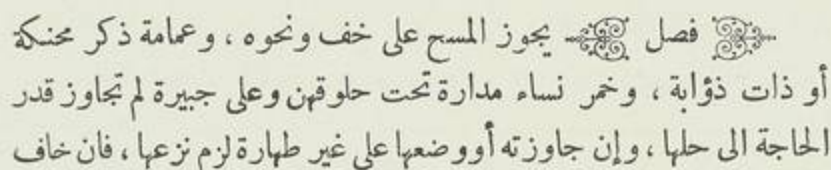 فصل يجوز المسح على خف ونحوه ، وعمامة ذكر محنكة
أو ذات ذؤابة ، وخمر نساء مدارة تحت حلوقهن وعلى جبيرة لم تجاوز قدر
الحاجة الى حلها ، وإن جاوزته أووضعها على غير طهارة لزم نزعها ، فان خاف